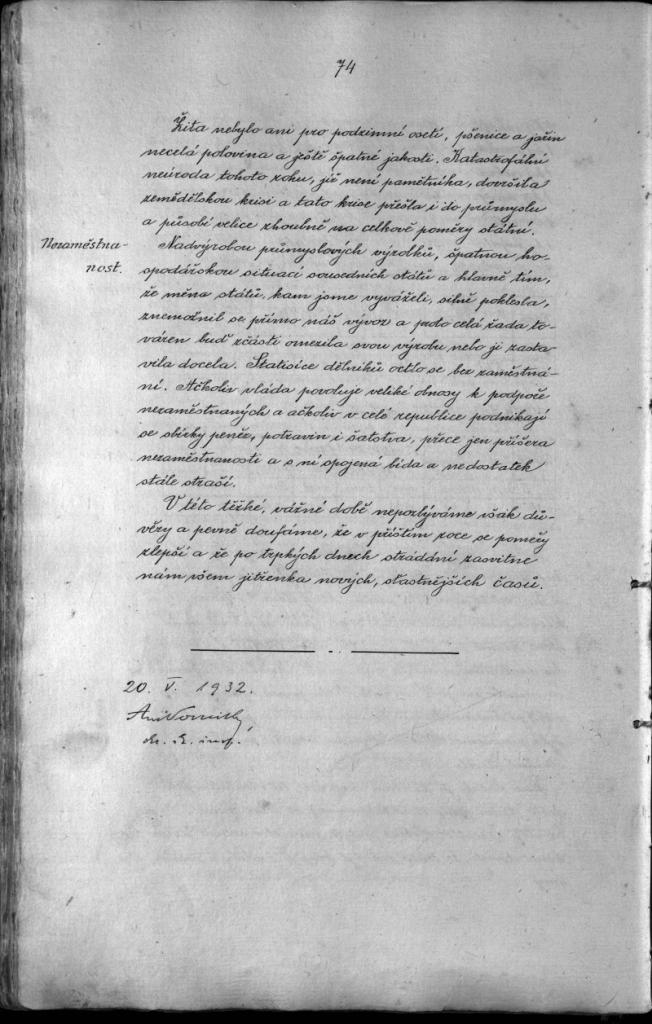 74
Žita nebylo ani pro podzimní osetí, pšenice a jařin
necelá polovina a ještě špatné jakosti. Katastrofální
neúroda tohoto roku, jíž není pamětníka, dovršila
zemědělskou krisi a tato krise přešla i do průmyslu
a působí velice zhoubně na celkové poměry státní.
Nezaměstna-
nost.
Nadvýrobou průmyslových výrobků, špatnou ho-
spodářskou situací sousedních států a hlavně tím,
že měna států, kam jsme vyváželi, silně poklesla,
znemožnil se přímo náš vývoz a proto celá řada to-
váren buď zčásti omezila svou výrobu nebo ji zasta-
vila docela. Statisíce dělníků octlo se bez zaměstná-
ní. Ačkoliv vláda povoluje veliké obnosy k podpoře
nezaměstnaných a ačkoliv v celé republice podnikají
se sbírky peněz, potravin i šatstva, přece jen příšera
nezaměstnanosti a s ní spojená bída a nedostatek
stále straší.
V této těžké, vážné době nepozbýváme však dů-
věry a pevně doufáme, že v příštím roce se poměry
zlepší a že po trpkých dnech strádání zasvitne
nám všem jitřenka nových, šťastnějších časů.
20. V. 1932.